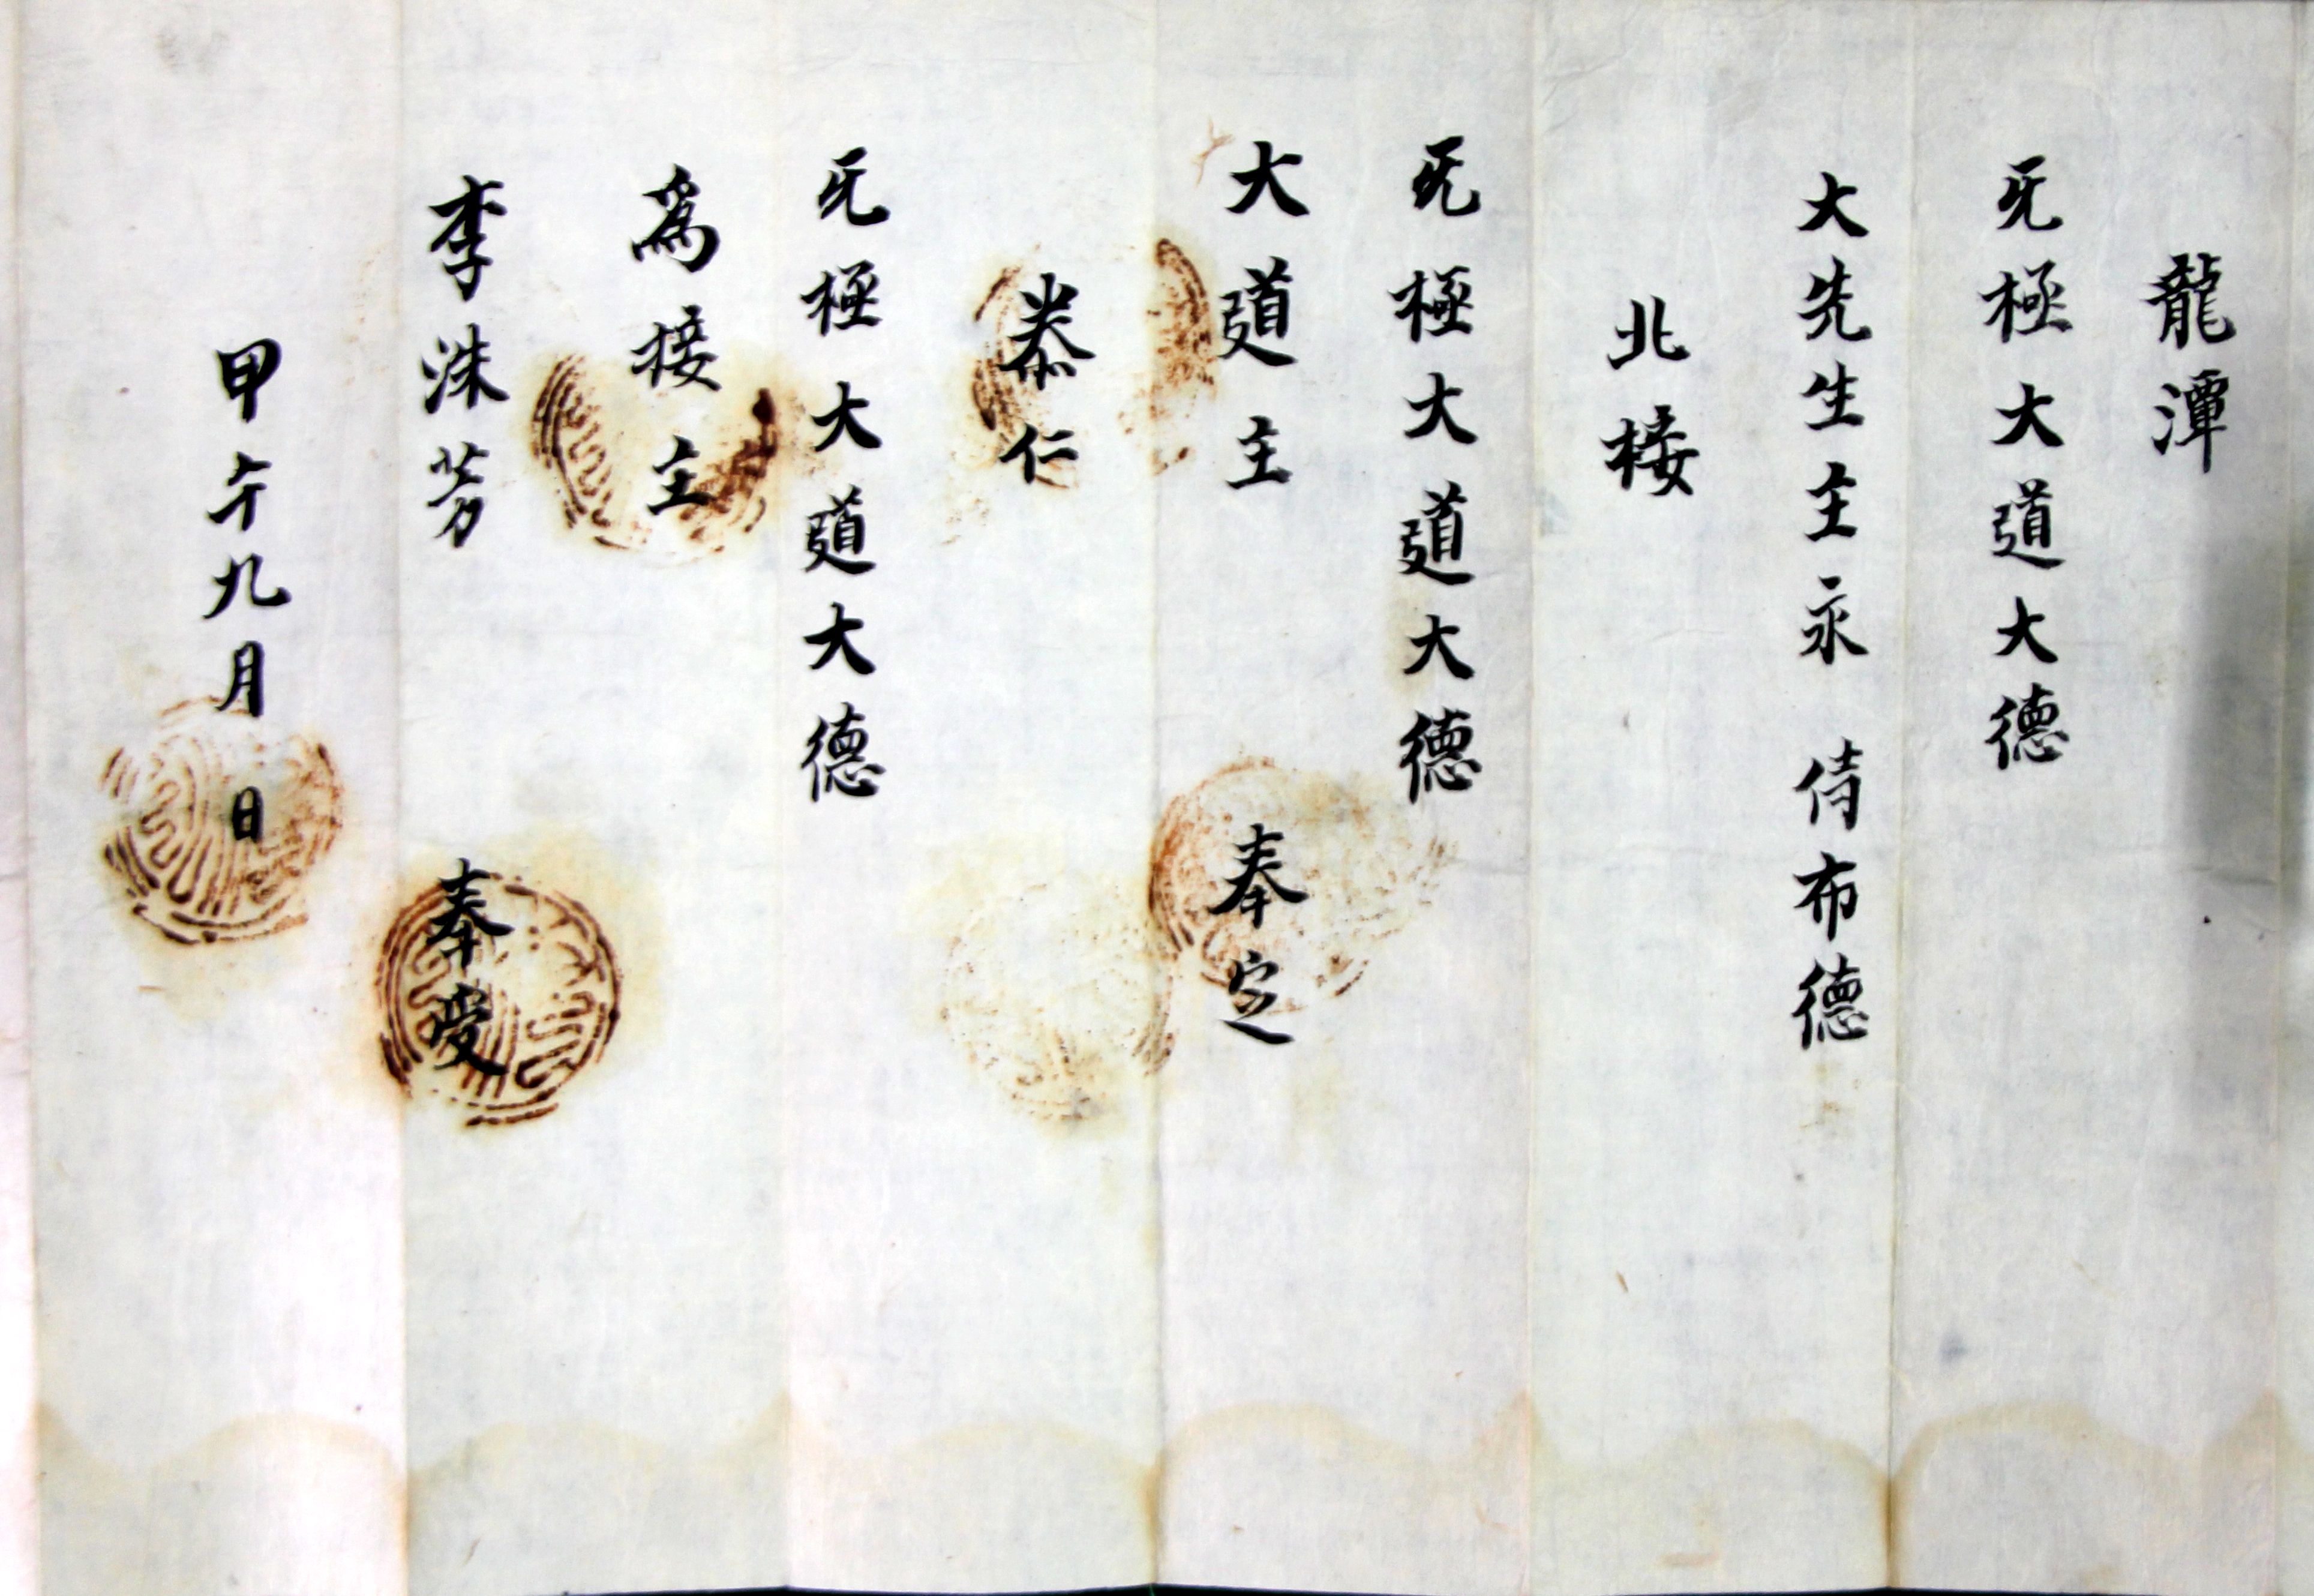 龍潭
无極大道大德
大先生主永 侍布德
北接
无極大道大德
大道主 奉定
泰仁
无極大道大德
爲接主
李洙芳 奉受
甲午九月 日